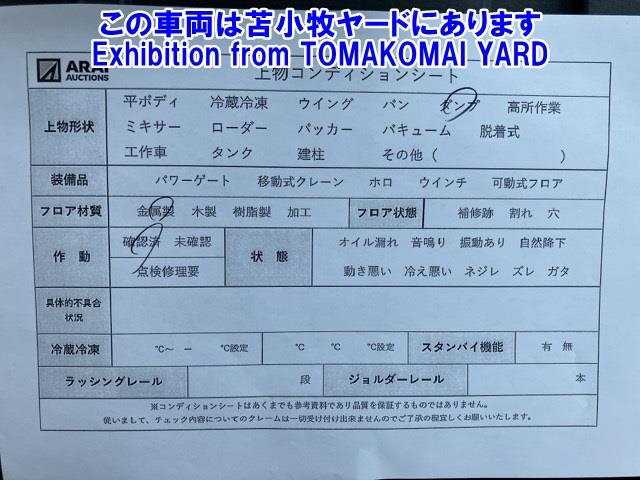 この車両は苫小牧ヤードにあります
Exhibition from TOMAKOMAI YARD
ARAI
AUCTIONS
上物コンディションシート
上物形状
平ボディ 冷蔵冷凍 ウイング バン ダンプ 高所作業
ミキサー ローダー パッカー バキューム 脱着式
工作車 タンク 建柱 その他 ( )
装備品 パワーゲート 移動式クレーン ホロ ウインチ 可動式フロア
フロア材質 金属製 木製 樹脂製 加工 フロア状態 補修跡 割れ 穴
作動 確認済 未確認
点検修理要
状態 オイル漏れ 音鳴り 振動あり 自然降下
動き悪い 冷え悪い ネジレ ズレ ガタ
具体的不具合
状況
冷蔵冷凍 ℃～ ー ℃設定 ℃ ℃ ℃設定 スタンバイ機能 有 無
ラッシングレール 段 ジョルダーレール 本
※コンディションシートはあくまでも参考資料であり品質を保証するものではありません。
従いまして、チェック内容についてのクレームは一切受け付け出来ませんのでご了承の程宜しくお願いいたします。